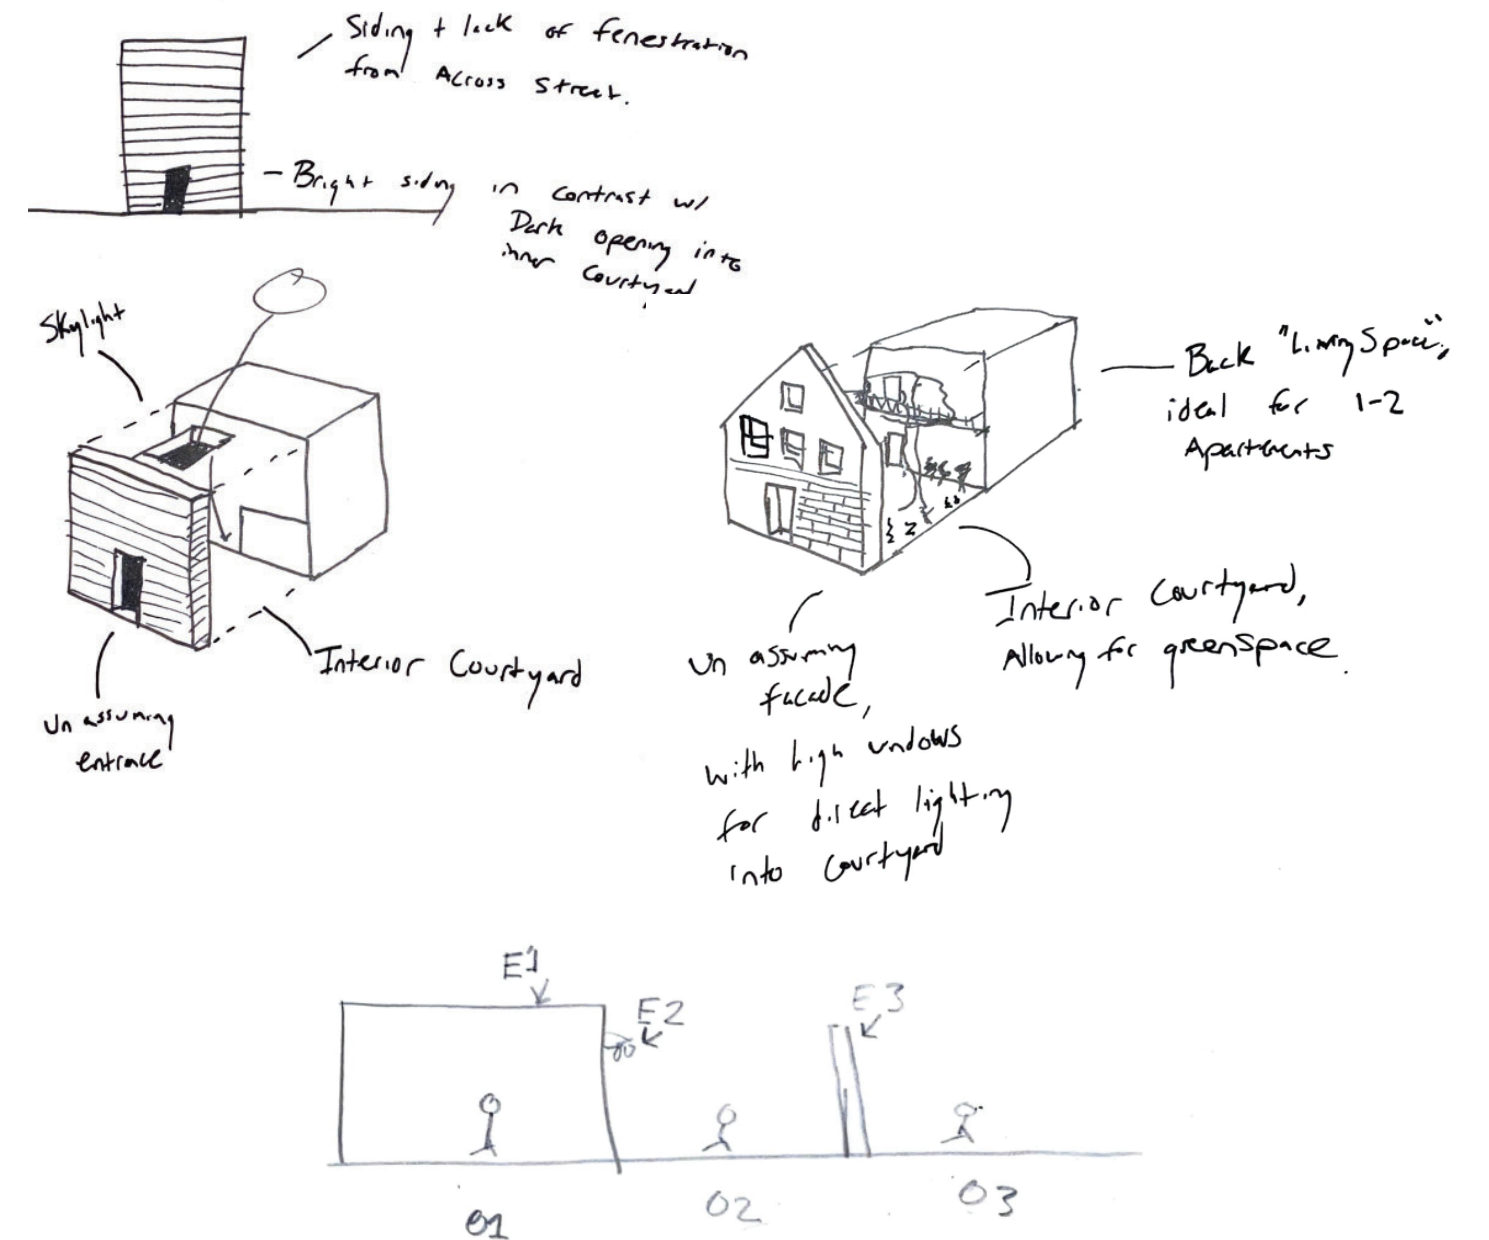 Siding + lack of fenestration
from Across Street.
Bright siding in contrast w/
Dark opening into
inner Courtyard
Skylight
Interior Courtyard
Un assuming
entrance
Back "Living Space",
ideal for 1-2
Apartments
Interior Courtyard,
Allowing for greenspace.
Un assuming
facade,
with high windows
for direct lighting
into Courtyard
E1
E2
E3
01
02
03